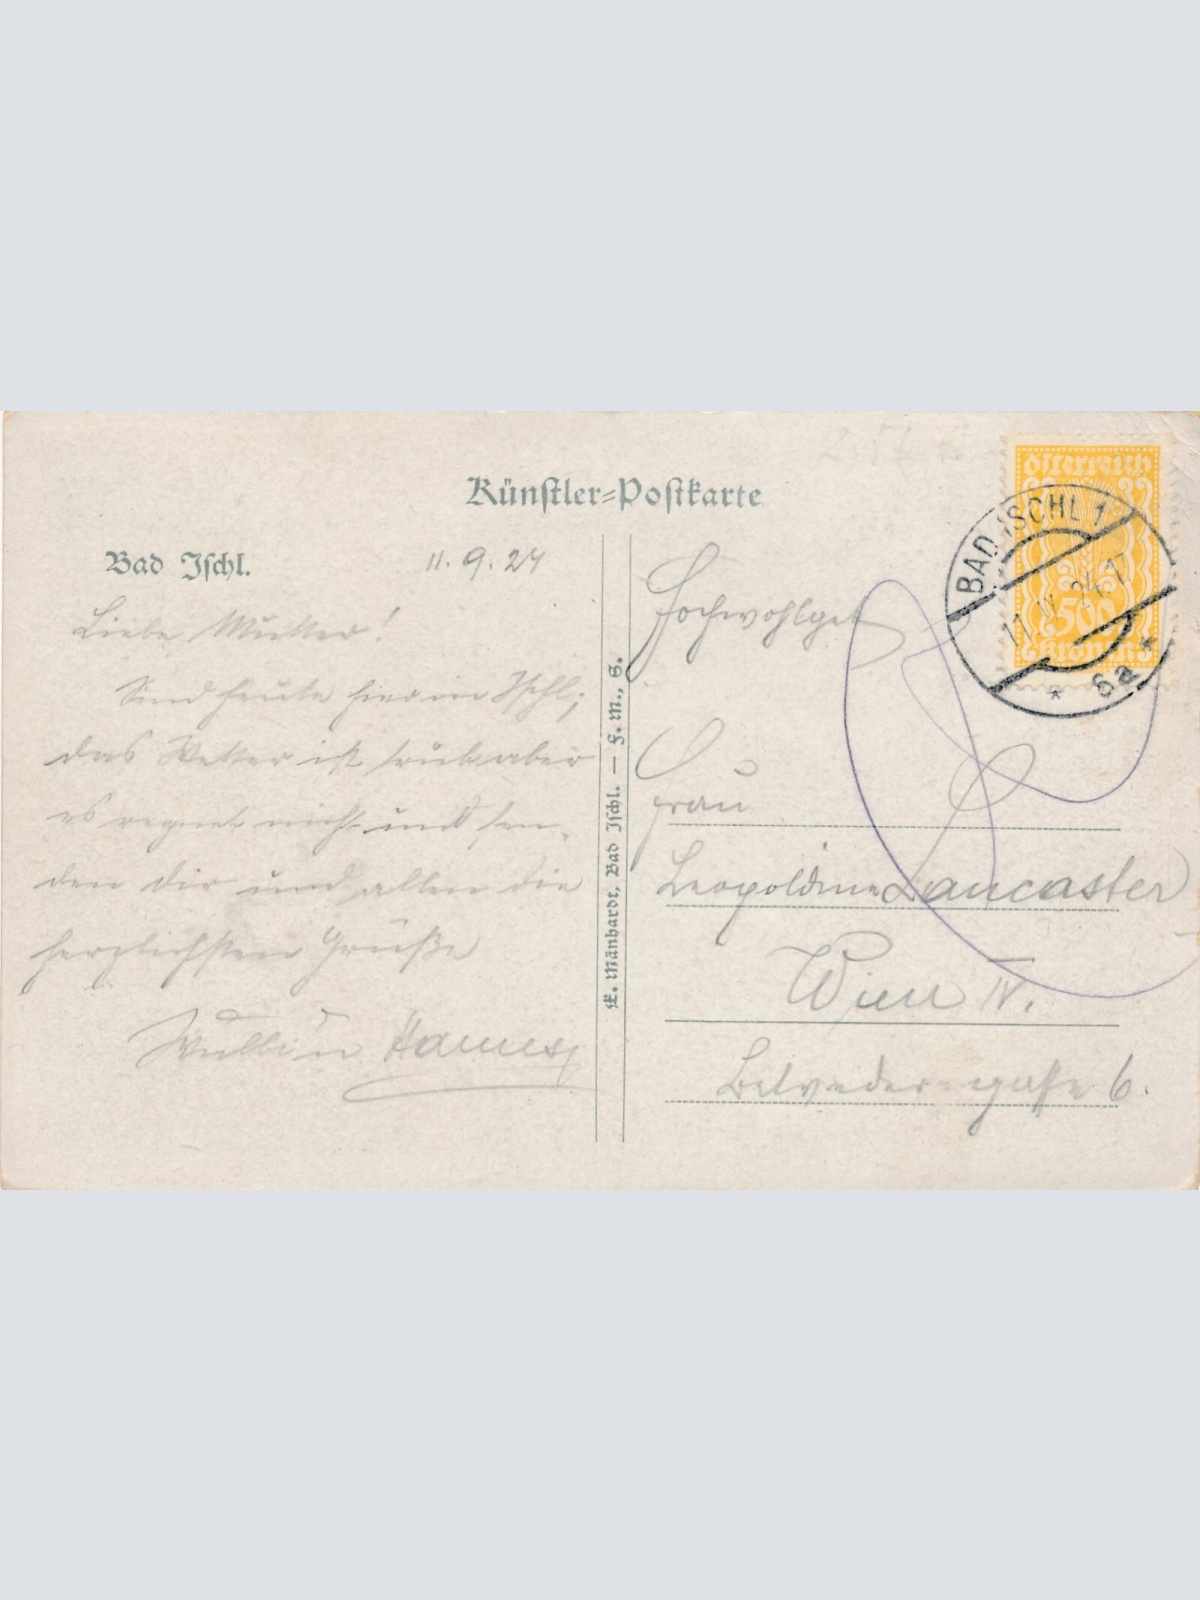 Künstler-Postkarte
Bad Ischl.
11. 9. 24
Liebe Mutter!
Sind heute hier in Ischl;
das Wetter ist trüb aber
es regnet nicht und sen-
den dir und allen die
herzlichsten Grüße
u Hannes
E. Mänhardt, Bad Ischl. — F. M., S.
Hochwohlgeb
Frau
Leopoldine Lancaster
Wien IV.
Belvederegasse 6.
Österreich
500
Kronen
BAD ISCHL 1
11 IX 24 17
* 6a *